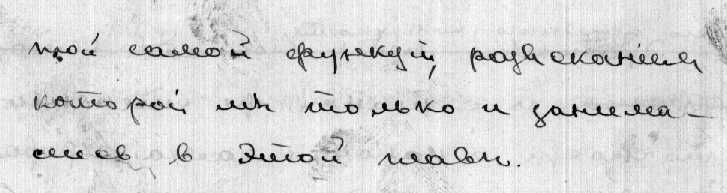 той самой функціи, разысканіем
которой мы только и занима-
лись в этой главѣ.